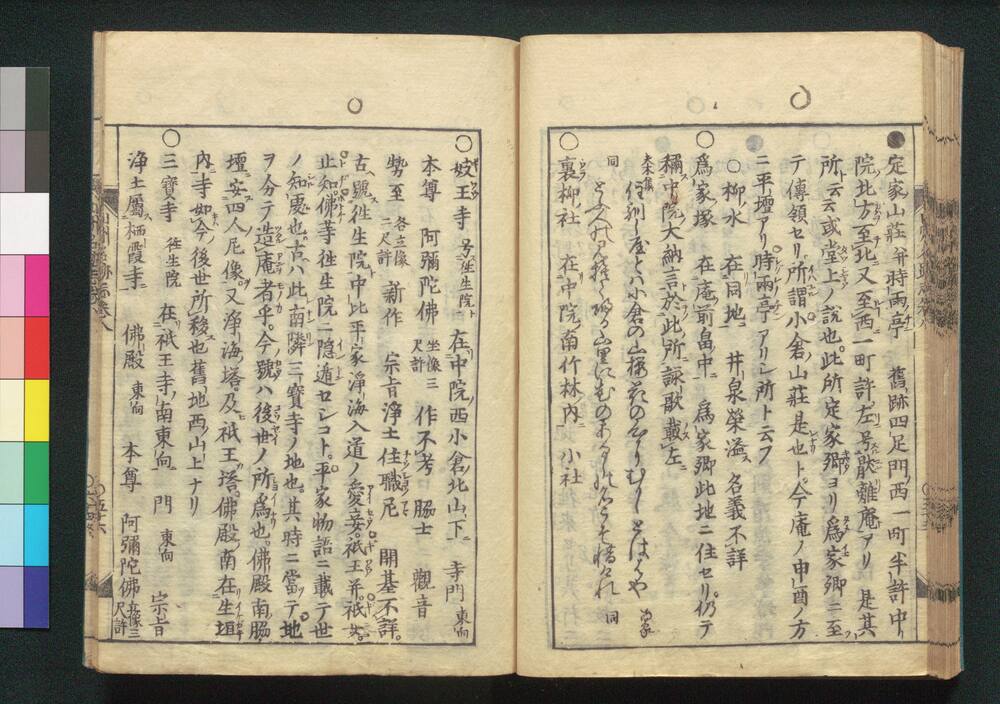 定家山莊并時雨亭 舊跡四足門西一町半許中
院北方至北又至西一町許左号厭離庵アリ 是其
所ト云云或堂上ノ說也此所定家卿ヨリ爲家卿ニ至
テ傳領セリ所謂小倉山莊是也ト今庵ノ申酉ノ方
ニ平壇アリ時雨亭アリシ所ト云フ
○柳ノ水 在同地 井泉榮溢ス 名義不詳
○爲家塚 在庵前畠中 爲家卿此地ニ住セリ仍テ
稱中院大納言於此所詠歌載左
○裏柳社 在中院南竹林內 小社
○妓王寺 号往生院ト 在中院西小倉北山下 寺門 東向
本尊 阿彌陀佛 坐像三尺許 作不考 脇士 觀音
勢至 各立像二尺許 新作 宗旨淨土住職尼 開基不詳
古ヘ號往生院中比平家淨海入道ノ愛妾祇王并祇女
止知佛等往生院ニ隱遁セシコト平家物語ニ載テ世
ノ知處也古ハ此南隣三寶寺ノ地也其時ニ當テ地
ヲ分テ造庵者乎今號ハ後世ノ所爲也佛殿南脇
壇安四人尼像又淨海塔及祇王塔佛殿南在生垣
內寺如今後世所移也舊地西山上ナリ
○三寶寺 往生院 在祇王寺南東向 門 東向 宗旨
淨土屬栖霞寺 佛殿 東向 本尊 阿彌陀佛 立像三尺許